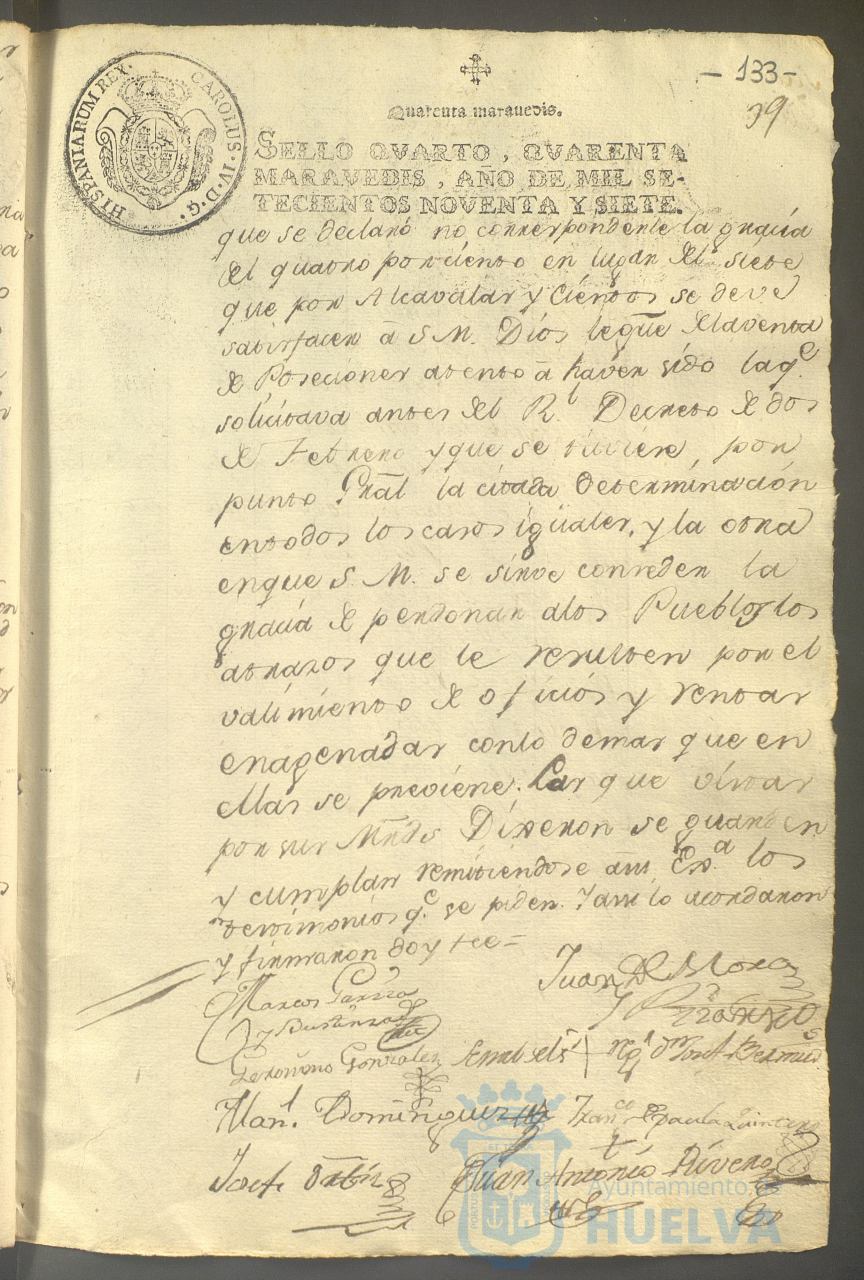 HISPANIARUM REX. CAROLUS. IV. D. G.
- 133 -
39
Quarenta maravedis.
SELLO QVARTO, QVARENTA
MARAVEDIS, AÑO DE MIL SE-
TECIENTOS NOVENTA Y SIETE.
que se declaró no correspondente la gracia
del quatro por ciento en lugar del siete
que por Alcavalas y Cientos se deve
satisfacer â S. M. Dios legue. de la venta
de Posesiones atento â haver sido la qe.
solicitava antes del Rl. Decreto de dos
de Febrero y que se tuviere por
punto Gral la citada Determinación
en todos los casos iguales, y la otra
en que S. M. se sirve conceder la
gracia de perdonar alos Pueblos los
atrazos que le resulten por el
valimiento de oficios y rentas
enagenadas con lo demas que en
ellas se previene. Las que vistas
por sus Mrds Dixeron se guarden
y cumplan remitiendose a su Exa. los
testimonios qe. se piden. Y assi lo acordaron
y firmaron doy fee =
Juan De Mora
Marcos Garcia
y Bustinza
Geronimo Gonzalez
Manl. Dominguez
Franco. de Paula Quintero
Josef Ortiz
Juan Antonio Rivero
Ayuntamiento de
HUELVA